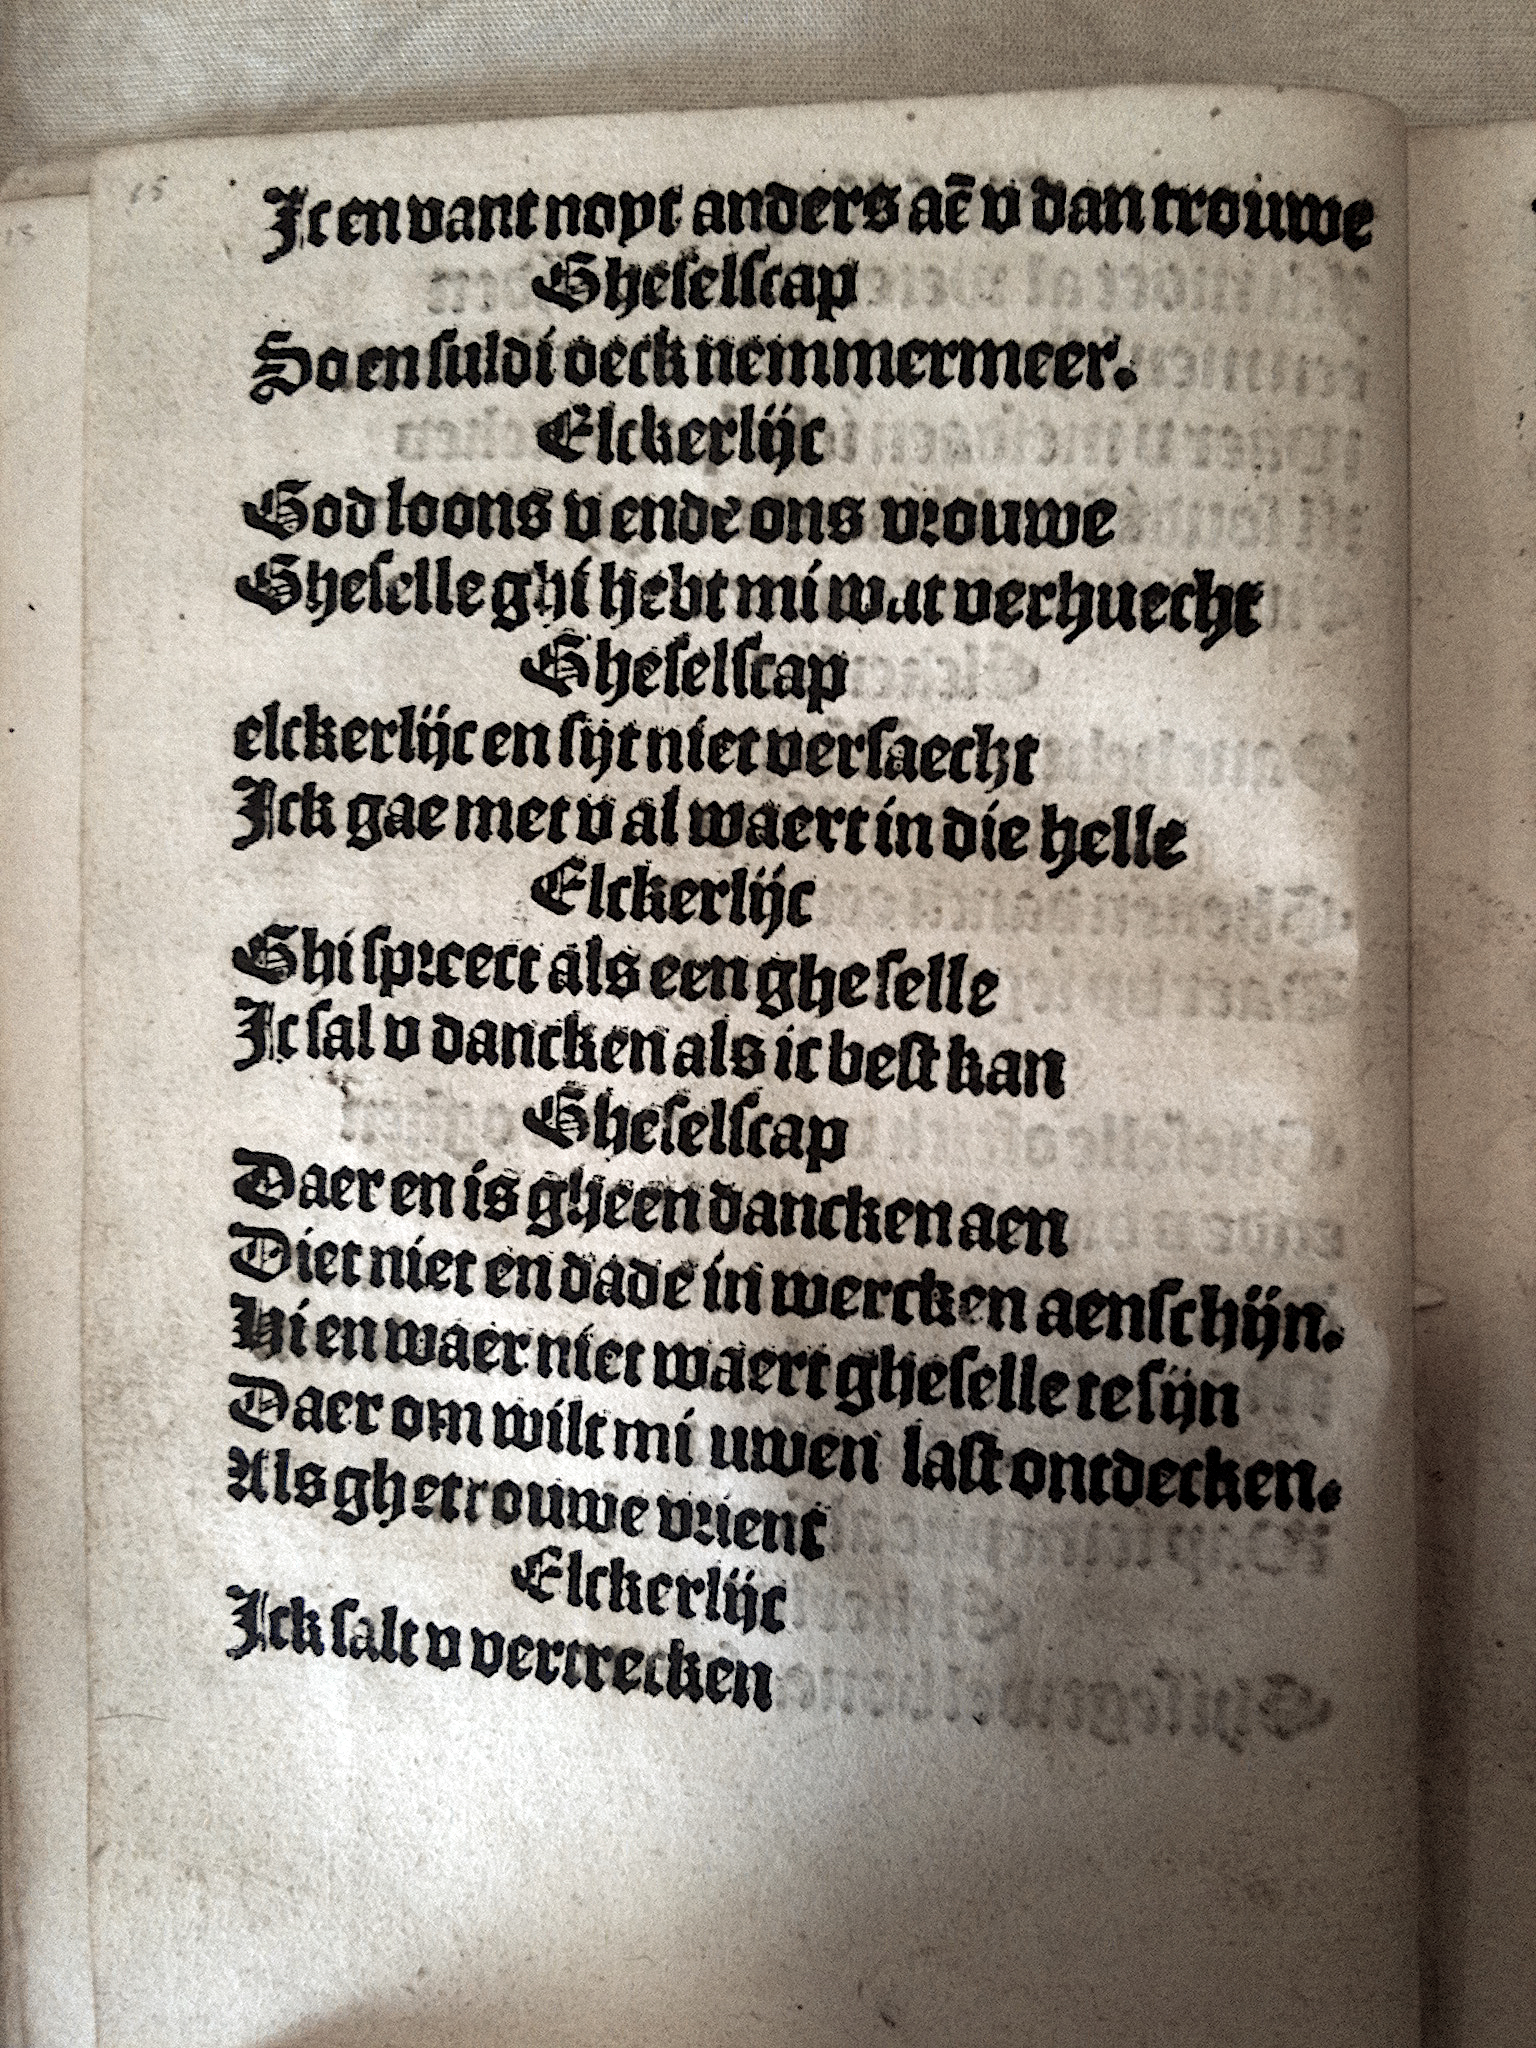 Ic en vant noyt anders aē v dan trouwe
Gheselscap
So en suldi oeck nemmermeer.
Elckerlijc
God loons v ende ons vrouwe
Gheselle ghi hebt mi wat verhuecht
Gheselscap
elckerlijc en sijt niet versaecht
Ick gae met v al waert in die helle
Elckerlijc
Ghi spreect als een gheselle
Ic sal v dancken als ic best kan
Gheselscap
Daer en is gheen dancken aen
Diet niet en dade in wercken aenschijn.
Hi en waer niet waert gheselle te sijn
Daer om wilt mi uwen last ontdecken.
Als ghetrouwe vrient
Elckerlijc
Ick salt v vertrecken